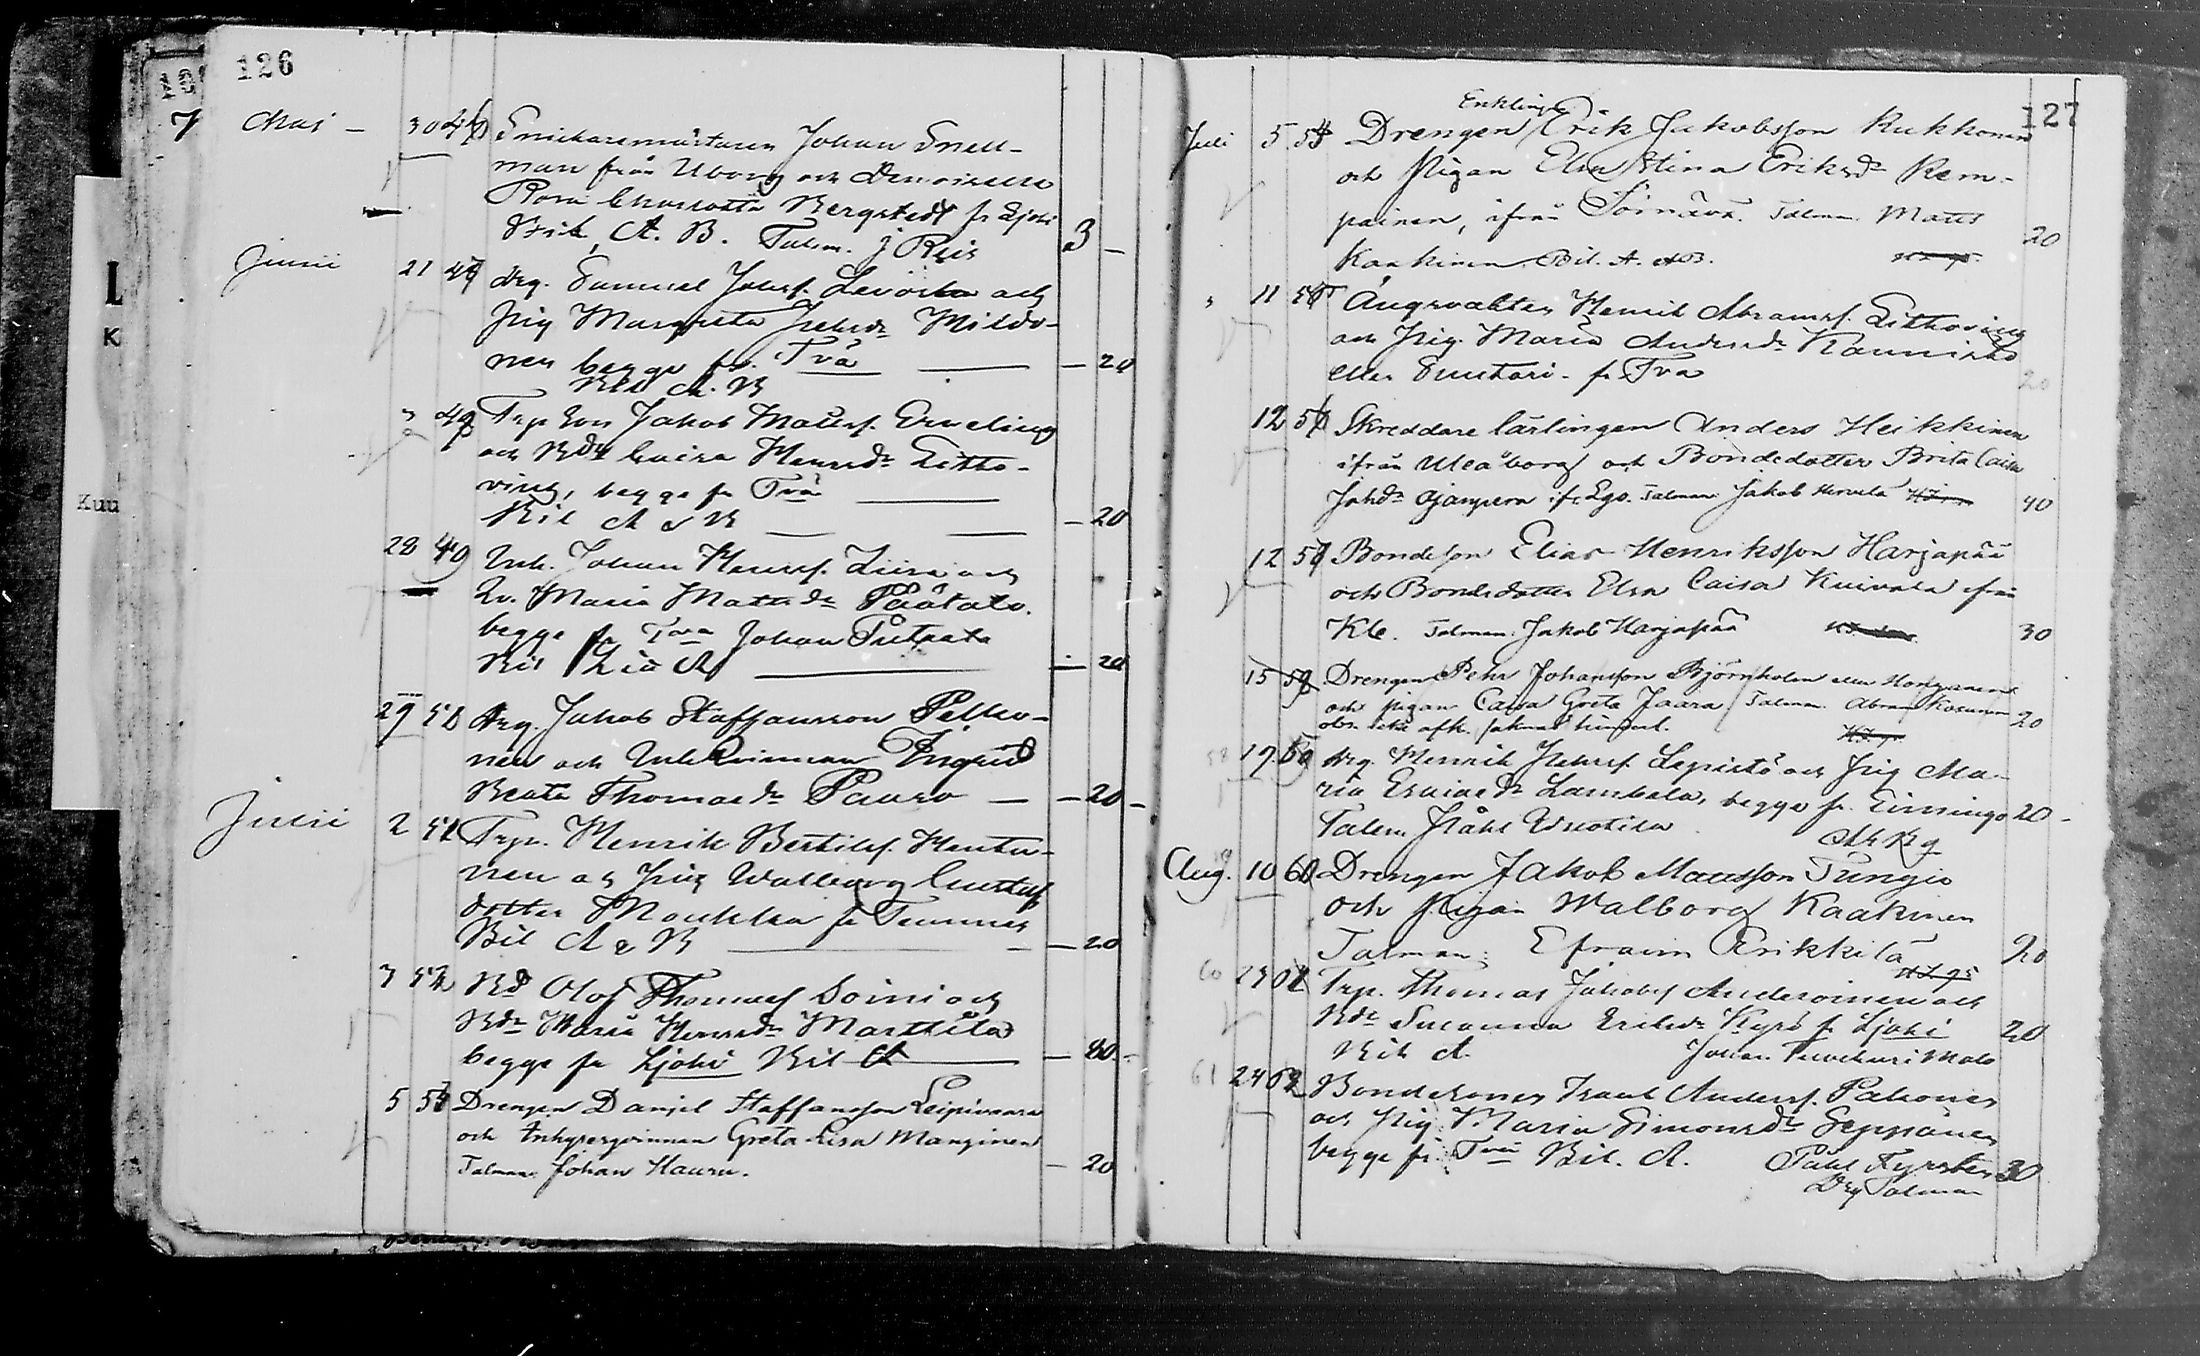 126
7 Maj – 30 46 Snickaremästaren Johan Snell-
man från Uborg och Demoiselle
Rosa Charlotta Bergstedt fr Ljoki
Bil. A. B. Talm. J Reis 3 –
Junii 21 47 drg. Samuel Johsf. och
Pig Margreta Miläv-
nen begge fr. Tvä — – 20
Bil A. B
" 48 Trp Son Jakob Mattsf. Erveling
och Bdr Caisa Henrsdr Litho-
vius, begge fr Tvä —
Bil A & B — – 20
28 49 Inh. Johan Henrsf. Liira och
Qv. Maria Mattsdr Päätalo.
begge fr Tva Johan
Bil A — – 20
29 50 drg. Jakob Staffansson Pelko-
nen och InhQvinnan Ingrid
Beata Thomasdr Pauro – – 20 –
Julii 2 51 Trp. Henrik Bertilsf. Hentu-
nen och Pig Walborg Gustafs
dotter Moukka fr Temmes
Bil A & B — – 20
3 52 Bd Olof Thomasf Soini och
Bdr Maria Henrsdr Marttila
begge fr Ljoki Bil A — – 80 –
5 53 Drengen Daniel Staffansson Leipivaara
och Inhysesqvinnan Greta Lisa Manginen
Talman Johan Hauru. – 20
127
Enklingen
Juli 5 54 Drengen Erik Jakobsson Kukkonen
och Pigan Elsa Stina Eriksdr Kem-
painen, ifrån Sotnäva. Talman Matts
Kaakinen Bil. A. & B. 20
" 11 55 Ängsvakten Henrik Abramsf. Lithovius
och Pig. Maria Andersdr Kaunisto
eller Suutari – fr. Tva 20
12 56 Skreddare lärlingen Anders Heikkinen
ifrån Uleåborg och Bondedotter Brita Caisa
Johdr Ojanperä ifr Lgo. Talman Jakob Hervala 40
12 57 Bondeson Elias Henriksson Harjapää
och Bondedotter Elsa Caisa Kuivala ifrån
Kle. Talman: Jakob Harjapää 30
15 58 Drengen Pehr Johansson Björnholm eller Honganen
och pigan Caisa Greta Jaara Talman Abram Kosunen 20
obs. icke afk.
58 19 59 drg. Henrik Lepistö och Pig Ma-
ria Esaiaedr Lambela, begge fr. Limingo 20 –
Talm. Påhl Uusitila
59 Aug. 10 60 Drengen Jakob Mattsson Tungio
och Pigan Walborg Kaakinen
Talman: Efraim Erikkilä 20
60 23 61 Trp. Thomas Jakobsf Anderoinen och
Bdr Susanna Eriksdr Kyrö fr Ljoki 20
Bil A. Johan
61 24 62 Bondesonen Isaak Andersf. Pahonen
och Pig Maria Simonsdr Seppänen
begge fr. Tvä Bil. A. Påhl Fyrsten 30
Drg Talman